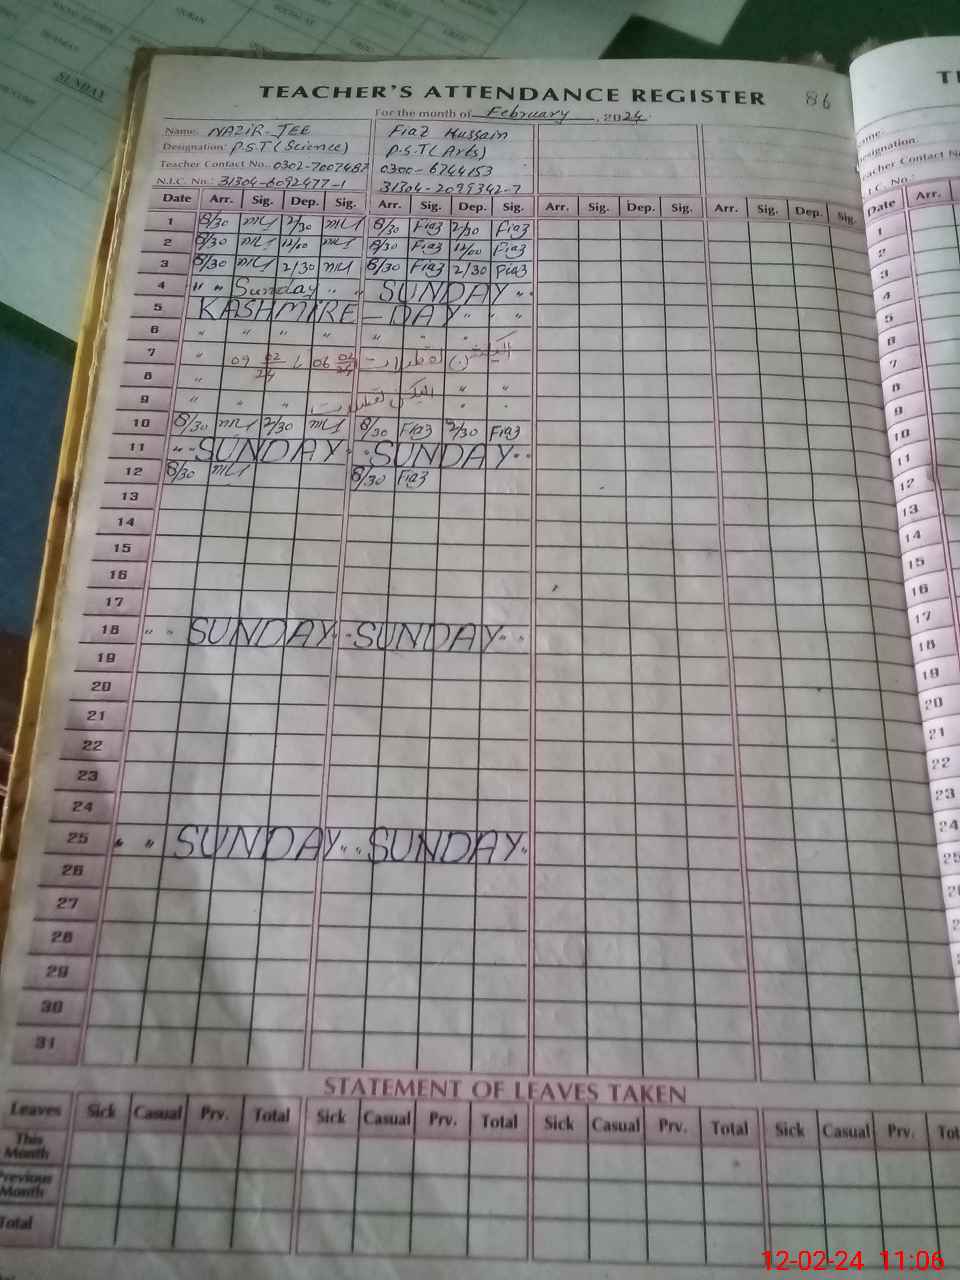 SUNDAY
TEACHER'S ATTENDANCE REGISTER 86
For the month of February, 2024
Name: NAZIR-JEE Fiaz Hussain
Designation: P.S.T (Science) P.S.T (Arts)
Teacher Contact No.: 0300-6744153
N.I.C. No.: 31304-6092477-1 31304-2099342-7
Date Arr. Sig. Dep. Sig. Arr. Sig. Dep. Sig. Arr. Sig. Dep. Sig. Arr. Sig. Dep. Sig.
1 8/30 2/30 8/30 Fiaz 2/30 Fiaz
2 8/30 12/00 8/30 Fiaz 12/00 Fiaz
3 8/30 2/30 8/30 Fiaz 2/30 Fiaz
4 " " Sunday " " SUNDAY " "
5 KASHMIRE - DAY " " "
6 " " " " " " "
7 " 09 02/24 06 02/24
8 " " "
9 " " " " "
10 8/30 2/30 8/30 Fiaz 2/30 Fiaz
11 " " SUNDAY " " SUNDAY " "
12 8/30 8/30 Fiaz
13
14
15
16
17
18 " " SUNDAY " " SUNDAY " "
19
20
21
22
23
24
25 " " SUNDAY " " SUNDAY "
26
27
28
29
30
31
STATEMENT OF LEAVES TAKEN
Leaves Sick Casual Prv. Total Sick Casual Prv. Total Sick Casual Prv. Total Sick Casual Prv.
This Month
Previous Month
Total
Date Arr.
1
2
3
4
5
6
7
8
9
10
11
12
13
14
15
16
17
18
19
20
21
22
23
24
25
12-02-24 11:06